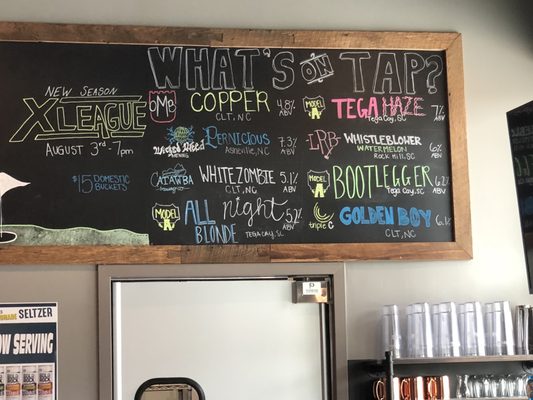 WHAT'S ON TAP?
NEW SEASON
X LEAGUE
AUGUST 3rd - 7pm
$15 DOMESTIC
BUCKETS
OMB
COPPER
CLT, NC
4.8%
ABV
PERNICIOUS
Asheville, NC
7.3%
ABV
CATAWBA
WHITE ZOMBIE
CLT, NC
5.1%
ABV
MODEL A
ALL night
BLONDE
TEGA CAY, SC
5.2%
ABV
MODEL A
TEGA HAZE
Tega Cay, SC
7%
ABV
LRB
WHISTLEBLOWER
WATERMELON
ROCK HILL, SC
6%
ABV
MODEL A
BOOTLEGGER
Tega Cay, SC
6.2%
ABV
triple C
GOLDEN BOY
CLT, NC
6.1%
SELTZER
NOW SERVING